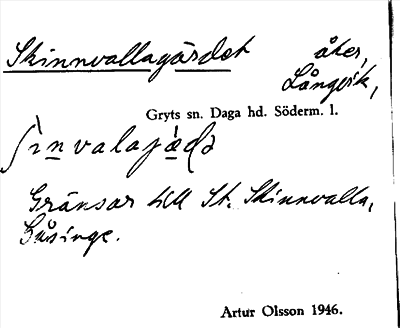 Skinnvallagärdet åker,
Långvik,
Gryts sn. Daga hd. Söderm. l.
Gränsar till St. Skinnvalla,
Gåsinge.
Artur Olsson 1946.